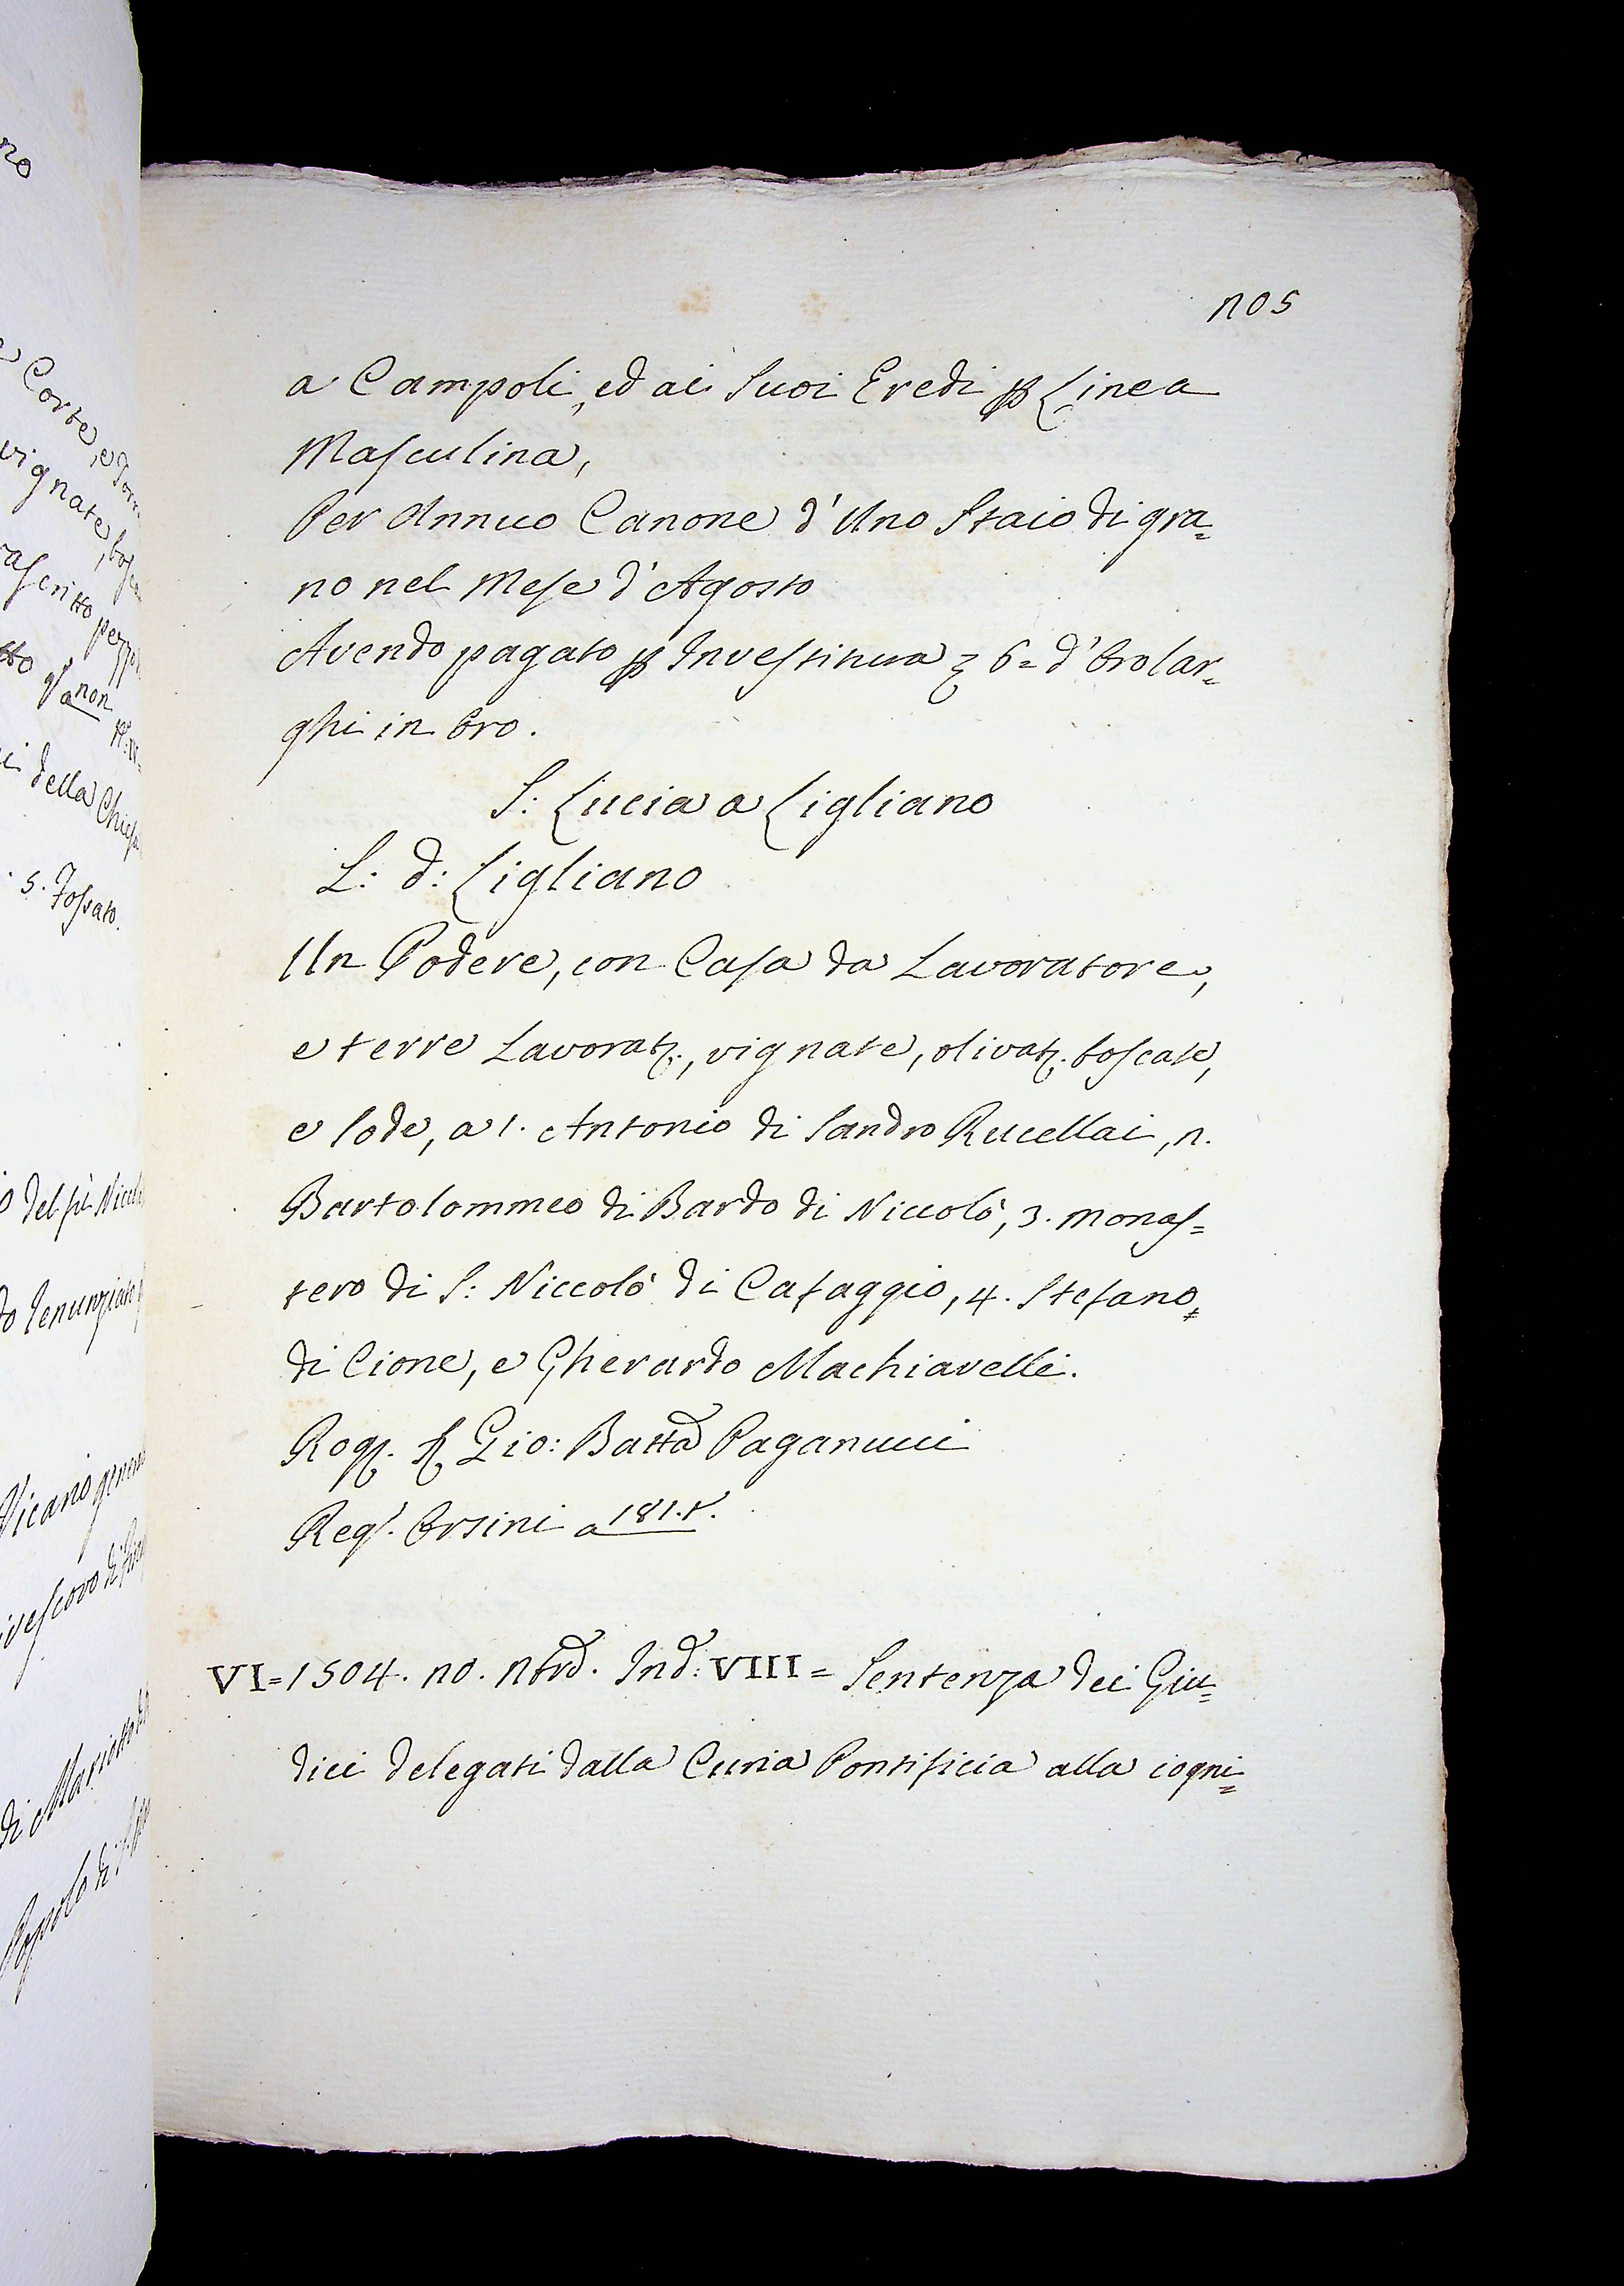 205
a Campoli, ed ai Suoi Eredi p Linea
Masculina,
Per Annuo Canone d'Uno Staio di gra=
no nel Mese d'Agosto
Avendo pagato p Investitura 6= d'Oro lar=
ghi in Oro.
S: Lucia a Ligliano
L: d: Ligliano
Un Podere, con Casa da Lavoratore,
e terre Lavorat:, vignate, olivat: boscate,
e sode, a 1. Antonio di Sandro Rucellai, 2.
Bartolommeo di Bardo di Niccolò, 3. Monas=
tero di S: Niccolò di Cafaggio, 4. Stefano,
di Cione, e Gherardo Machiavelli.
Rog. S Gio: Batta Paganucci
Reg. Orsini a 181. t.
VI = 1504. 20. Nbre. Ind: VIII = Sentenza dei Giu=
dici delegati dalla Curia Pontificia alla cogni=
no
Corte, e
vignate,
della Chiesa
5. Fossato.
del
Vicario
di Mariotto
Popolo di